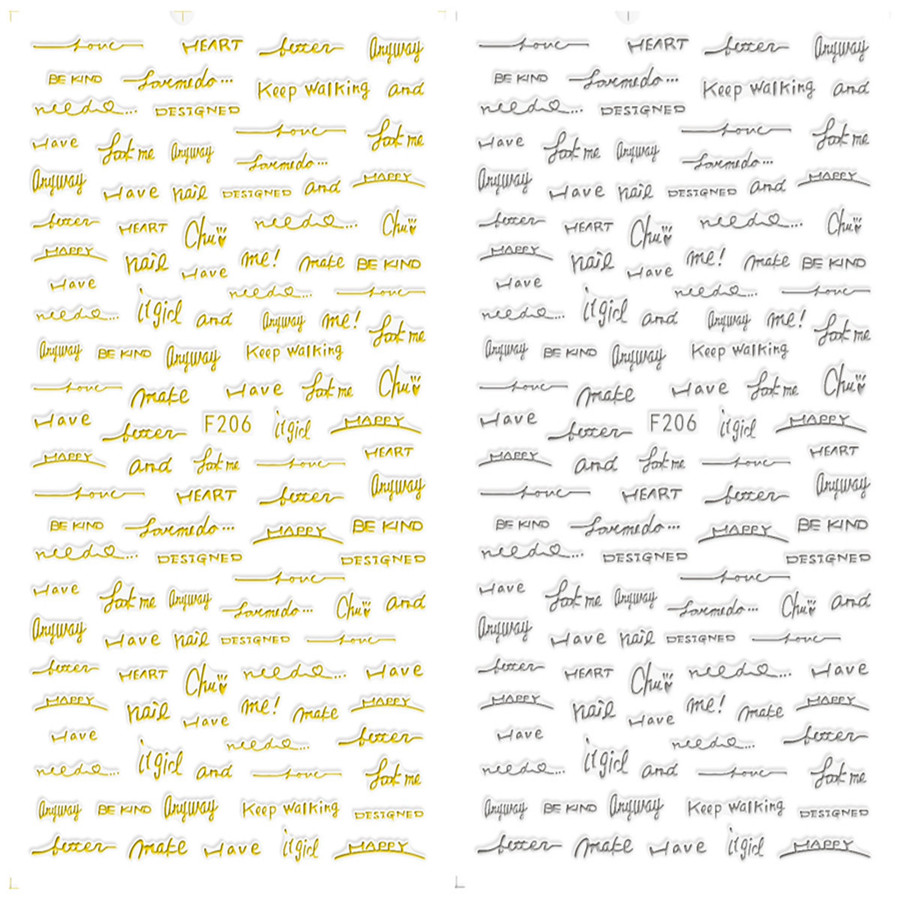 love HEART better Anyway
BE KIND Lovmedo... Keep walking and
need... DESIGNED
Have love look me
look me Anyway Lovmedo...
Anyway Have nail DESIGNED and HAPPY
better HEART Chu need... Chu
HAPPY nail Have me! make BE KIND
Have need... love
need... it girl and Anyway me! look me
Anyway BE KIND Anyway Keep walking
love make Have look me Chu
Have better F206 it girl HAPPY
HAPPY and look me love HEART
love HEART better Anyway
BE KIND Lovmedo... HAPPY BE KIND
need... DESIGNED DESIGNED
Have look me Anyway love
Lovmedo... Chu and
Anyway Have nail DESIGNED love
better HEART Chu need... Have
HAPPY nail Have me! make HAPPY
Have need... better
need... it girl and love look me
Anyway BE KIND Anyway Keep walking DESIGNED
better make Have it girl HAPPY
love HEART better Anyway
BE KIND Lovmedo... Keep walking and
need... DESIGNED
Have love look me
look me Anyway Lovmedo...
Anyway Have nail DESIGNED and HAPPY
better HEART Chu need... Chu
HAPPY nail Have me! make BE KIND
Have need... love
need... it girl and Anyway me! look me
Anyway BE KIND Anyway Keep walking
love make Have look me Chu
Have better F206 it girl HAPPY
HAPPY and look me love HEART
love HEART better Anyway
BE KIND Lovmedo... HAPPY BE KIND
need... DESIGNED DESIGNED
Have look me Anyway love
Lovmedo... Chu and
Anyway Have nail DESIGNED love
better HEART Chu need... Have
HAPPY nail Have me! make HAPPY
Have need... better
need... it girl and love look me
Anyway BE KIND Anyway Keep walking DESIGNED
better make Have it girl HAPPY